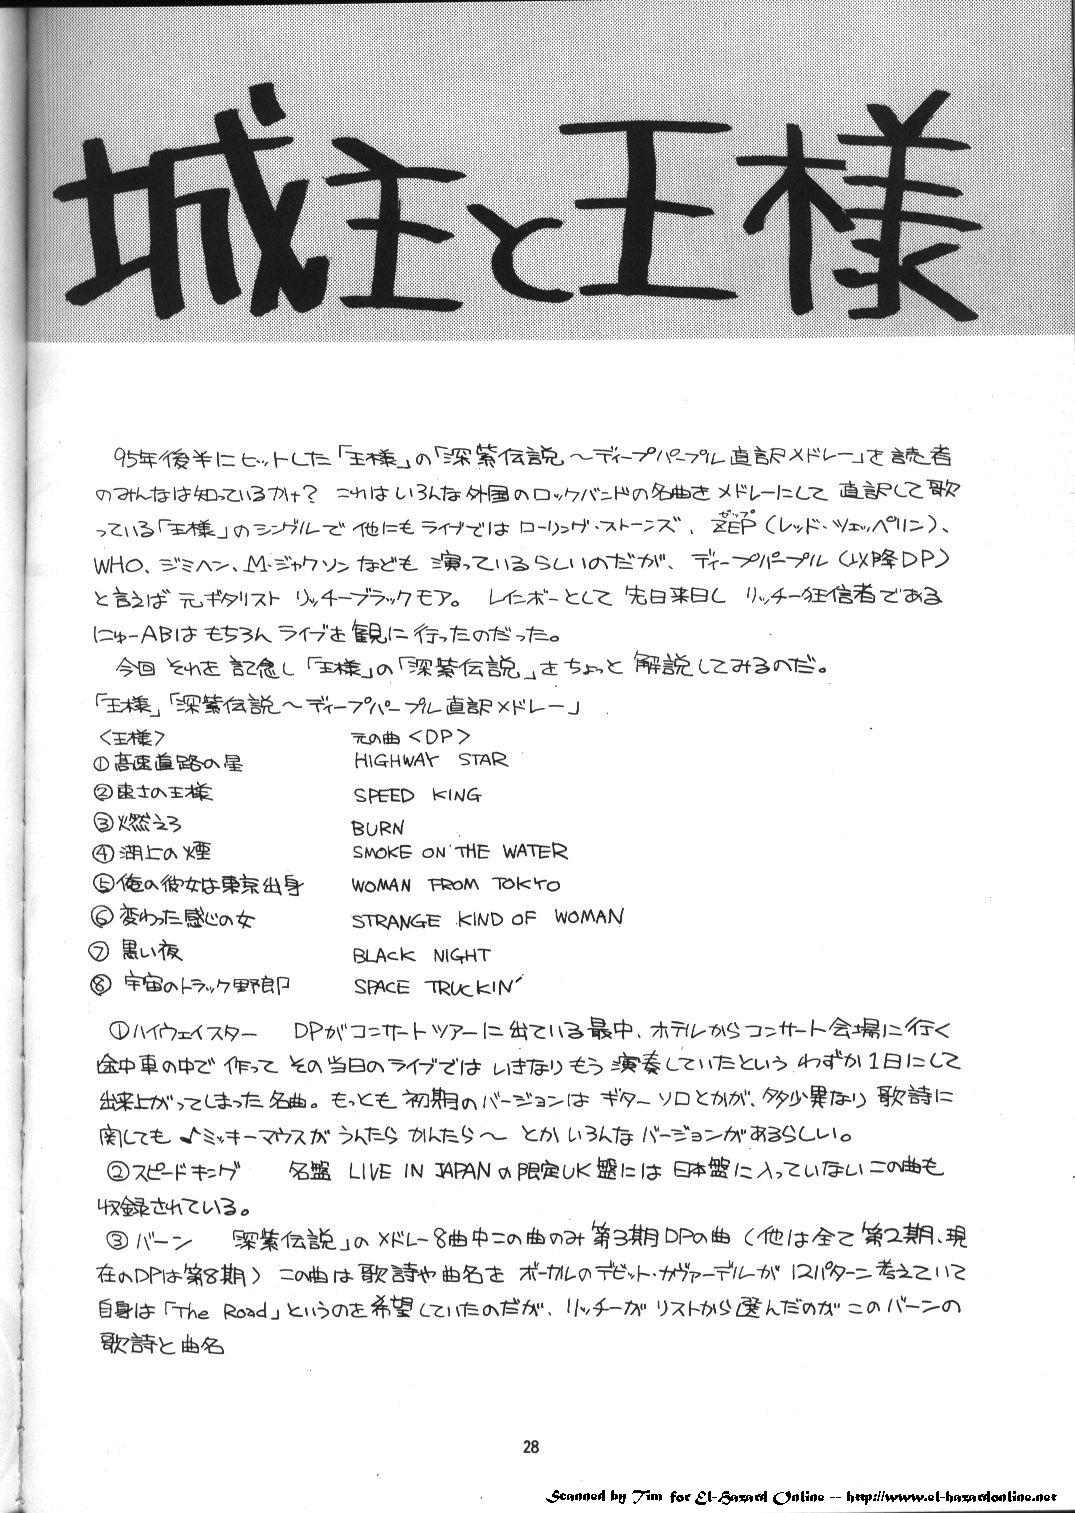 城主と王様
95年後半にヒットした「王様」の「深紫伝説～ディープパープル直訳メドレー」を読者
のみんなは知っているかけ？ これはいろんな外国のロックバンドの名曲をメドレーにして 直訳して歌
っている「王様」のシングルで 他にもライブでは ローリング・ストーンズ、ZEP（レッド・ツェッペリン）、
ゼップ
WHO、ジミヘン、M・ジャクソンなども 演っているらしいのだが、ディープパープル（以降DP）
と言えば 元ギタリスト リッチーブラックモア。 レインボーとして 先日来日し リッチー狂信者である
にゅーABは もちろん ライブを観に行ったのだった。
今回 それを記念し「王様」の「深紫伝説」をちょっと 解説してみるのだ。
「王様」「深紫伝説～ディープパープル直訳メドレー」
〈王様〉 元の曲〈DP〉
①高速道路の星 HIGHWAY STAR
②速さの王様 SPEED KING
③燃えろ BURN
④湖上の煙 SMOKE ON THE WATER
⑤俺の彼女は東京出身 WOMAN FROM TOKYO
⑥変わった感じの女 STRANGE KIND OF WOMAN
⑦黒い夜 BLACK NIGHT
⑧宇宙のトラック野郎 SPACE TRUCKIN'
①ハイウェイスター DPがコンサートツアーに出ている最中、ホテルからコンサート会場に行く
途中車の中で 作って その当日のライブでは いきなりもう演奏していたという わずか1日にして
出来上がってしまった名曲。もっとも 初期のバージョンは ギターソロとかが、多少異なり 歌詩に
関しても ♪ミッキーマウスが うんたら かんたら～ とか いろんな バージョンがあるらしい。
②スピードキング 名盤 LIVE IN JAPANの限定UK盤には 日本盤に入っていないこの曲も
収録されている。
③バーン 「深紫伝説」のメドレー8曲中この曲のみ 第3期DPの曲（他は全て第2期、現
在のDPは第8期）この曲は歌詩や曲名を ボーカルのデビット・カヴァーデルが 12パターン考えていて
自身は「The Road」というのを希望していたのだが、リッチーが リストから選んだのがこのバーンの
歌詩と曲名
28
Scanned by Tim for El-Hazard Online -- http://www.el-hazardonline.net